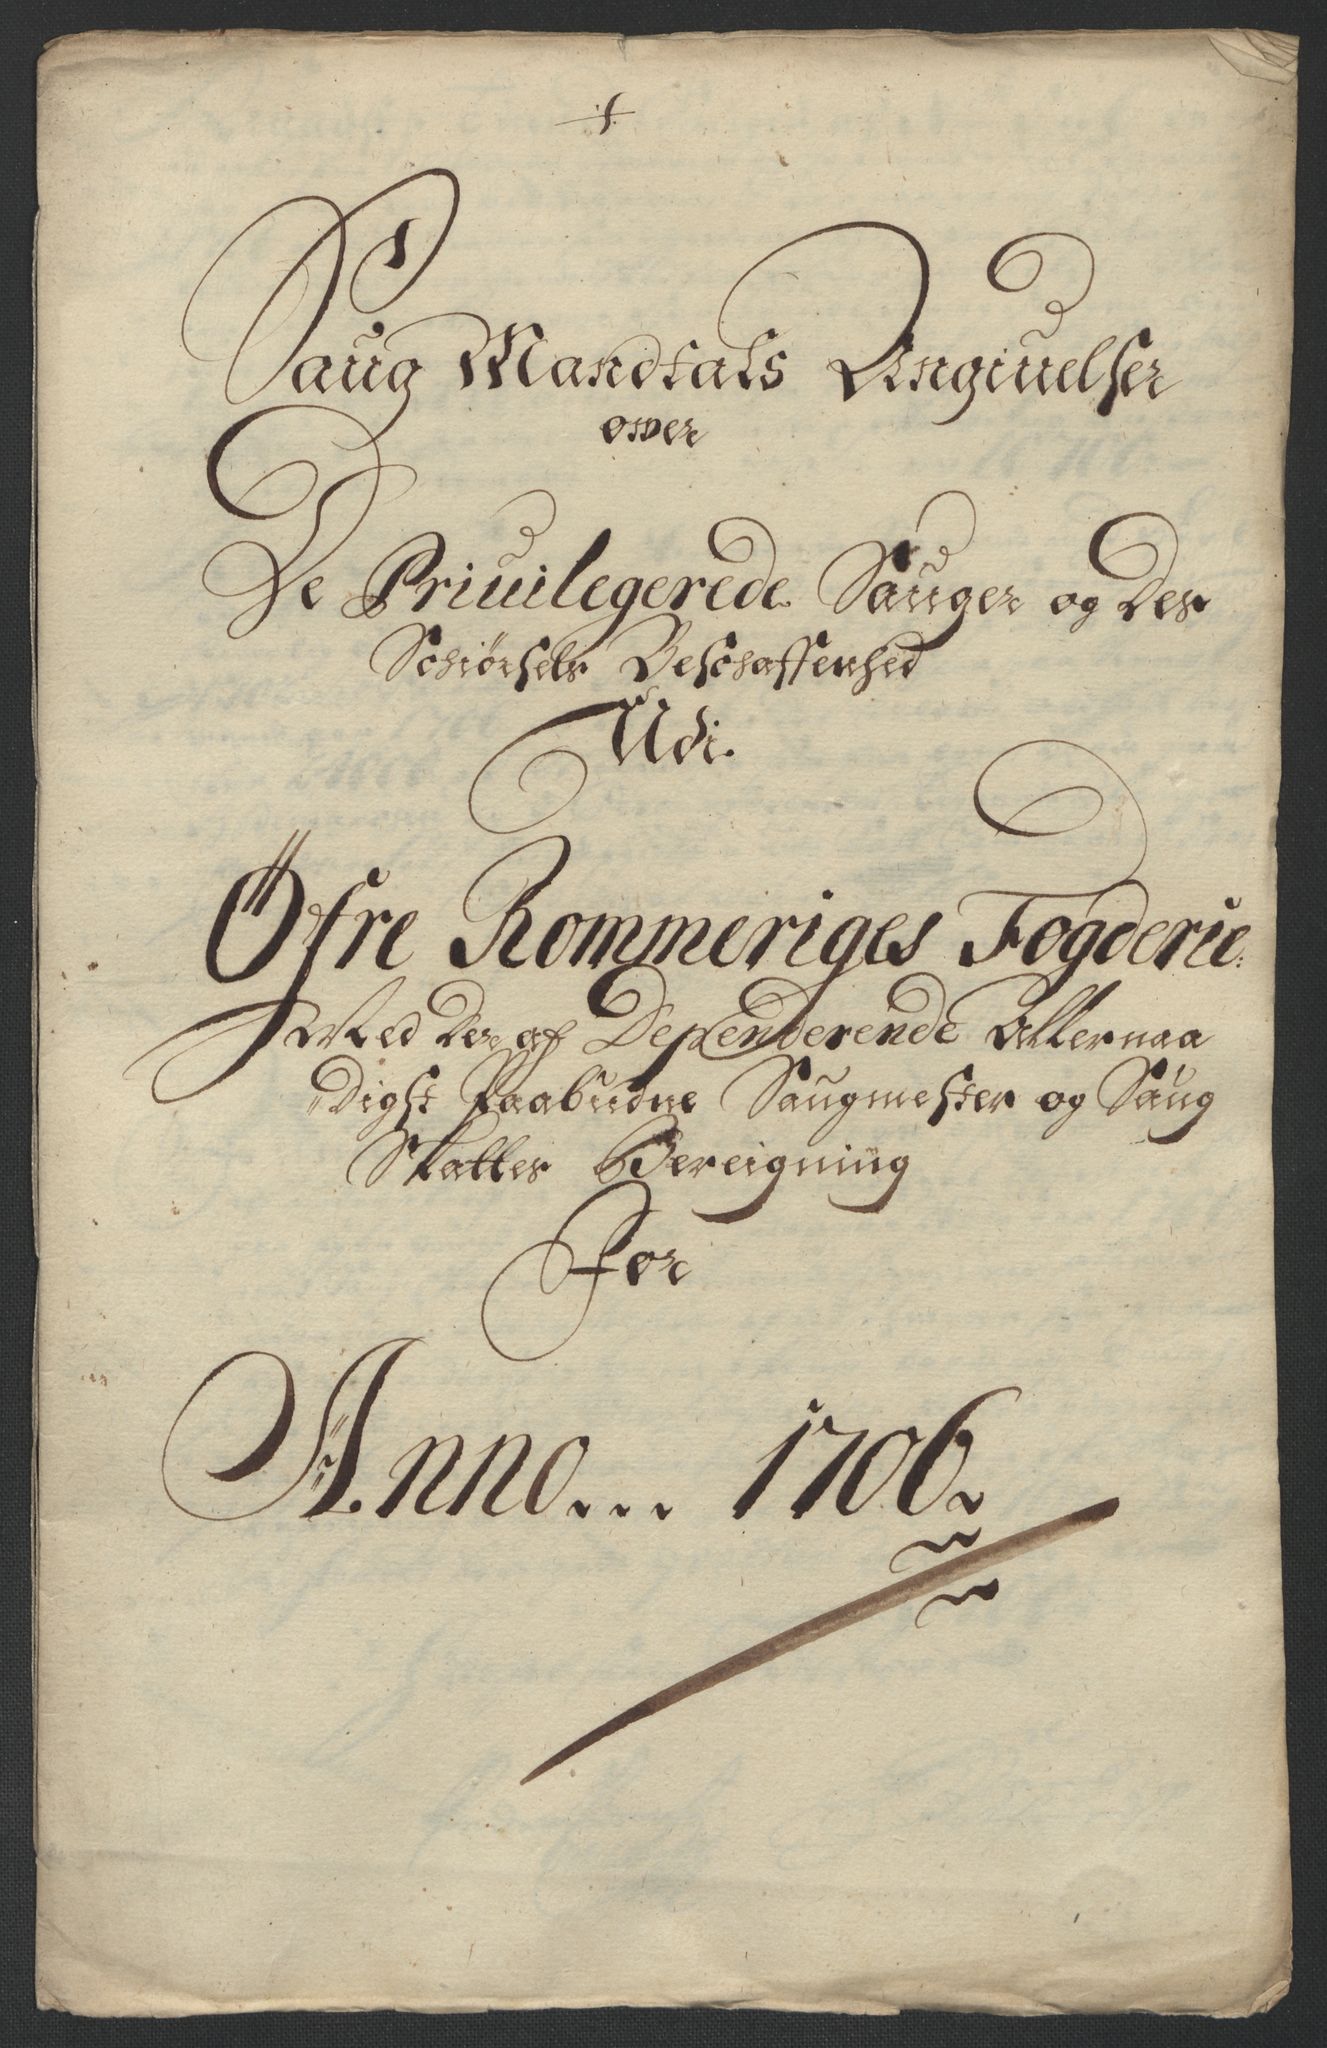 Saug Mandtals Angiuelser
over
De Priuilegerede Sauger og Des
Schiørsels Beschaffenhed
Udi.
Øfre Rommeriges Fogderie:
Med der af Dependerende Allernaa
digst Paabudne Saugmester og Saug
Skattes Bereigning
For
Anno... 1706.